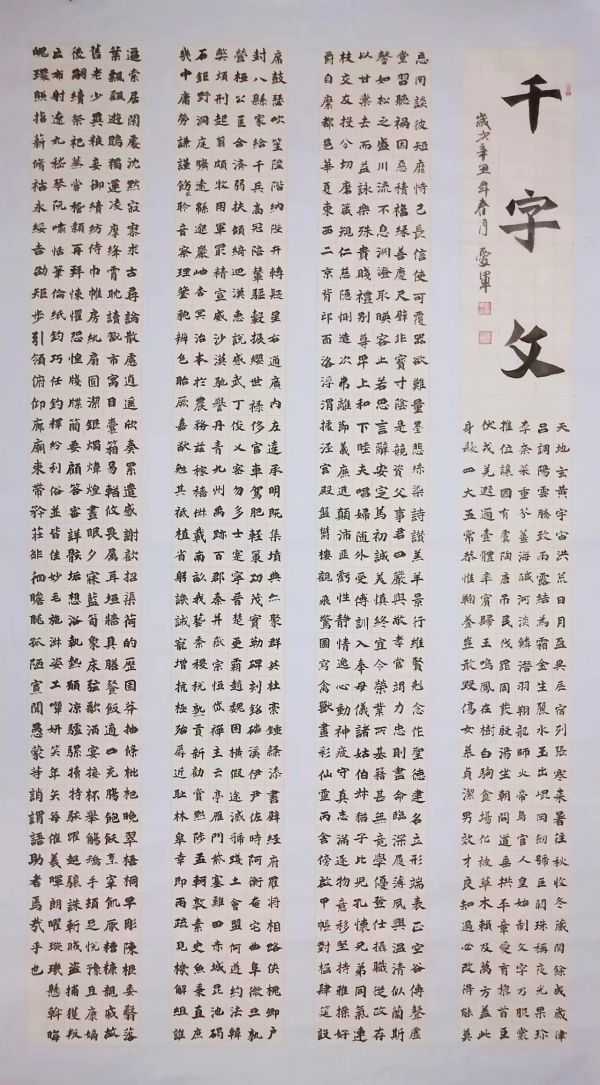 千字文
歲次辛丑年春月
天地玄黃宇宙洪荒日月盈昃辰宿列張寒來暑往秋收冬藏閏餘成歲律
呂調陽雲騰致雨露結為霜金生麗水玉出崐岡劍號巨闕珠稱夜光果珍
李柰菜重芥薑海鹹河淡鱗潛羽翔龍師火帝鳥官人皇始制文字乃服裳
推位讓國有虞陶唐弔民伐罪周發殷湯坐朝問道垂拱平章愛育黎首臣
伏戎羌遐邇壹體率賓歸王鳴鳳在樹白駒食場化被草木賴及萬方蓋此
身髮四大五常恭惟鞠養豈敢毀傷女慕貞潔男效才良知過必改得能莫
忘罔談彼短靡恃己長信使可覆器欲難量墨悲絲染詩讚羔羊景行維賢剋念作聖德建名立形端表正空谷傳聲虛
堂習聽禍因惡積福緣善慶尺璧非寶寸陰是競資父事君曰嚴與敬孝當竭力忠則盡命臨深履薄夙興溫清似蘭斯
馨如松之盛川流不息淵澄取映容止若思言辭安定篤初誠美慎終宜令榮業所基籍甚無竟學優登仕攝職從政存
以甘棠去而益詠樂殊貴賤禮別尊卑上和下睦夫唱婦隨外受傅訓入奉母儀諸姑伯叔猶子比兒孔懷兄弟同氣連
枝交友投分切磨箴規仁慈隱惻造次弗離節義廉退顛沛匪虧性靜情逸心動神疲守真志滿逐物意移堅持雅操好
爵自縻都邑華夏東西二京背邙面洛浮渭據涇宮殿盤鬱樓觀飛驚圖寫禽獸畫彩仙靈丙舍傍啟甲帳對楹肆筵設
席鼓瑟吹笙陞階納陛弁轉疑星右通廣內左達承明既集墳典亦聚群英杜槀鍾隸漆書壁經府羅將相路俠槐卿戶
封八縣家給千兵高冠陪輦驅轂振纓世祿侈富車駕肥輕策功茂實勒碑刻銘磻溪伊尹佐時阿衡奄宅曲阜微旦孰
營桓公匡合濟弱扶傾綺迴漢惠說感武丁俊乂密勿多士寔寧晉楚更霸趙魏困橫假途滅虢踐土會盟何遵約法韓
弊煩刑起翦頗牧用軍最精宣威沙漠馳譽丹青九州禹跡百郡秦并嶽宗恆岱禪主云亭雁門紫塞雞田赤城昆池碣
石鉅野洞庭曠遠緜邈巖岫杳冥治本於農務茲稼穡俶載南畝我藝黍稷稅熟貢新勸賞黜陟孟軻敦素史魚秉直庶
幾中庸勞謙謹敕聆音察理鑒貌辨色貽厥嘉猷勉其祗植省躬譏誡寵增抗極殆辱近恥林皋幸即兩疏見機解組誰
逼索居閒處沈默寂寥求古尋論散慮逍遙欣奏累遣慼謝歡招渠荷的歷園莽抽條枇杷晚翠梧桐早彫陳根委翳落
葉飄颻遊鵾獨運凌摩絳霄耽讀翫市寓目囊箱易輶攸畏屬耳垣牆具膳餐飯適口充腸飽飫烹宰飢厭糟糠親戚故
舊老少異糧妾御績紡侍巾帷房紈扇圓潔銀燭煒煌晝眠夕寐藍筍象床絃歌酒宴接杯舉觴矯手頓足悅豫且康嫡
後嗣續祭祀蒸嘗稽顙再拜悚懼恐惶牋牒簡要顧答審詳骸垢想浴執熱願涼驢騾犢特駭躍超驤誅斬賊盜捕獲叛
亡布射遼丸嵇琴阮嘯恬筆倫紙鈞巧任釣釋紛利俗並皆佳妙毛施淑姿工顰妍笑年矢每催羲暉朗曜璇璣懸斡晦
魄環照指薪修祜永綏吉劭矩步引領俯仰廊廟束帶矜莊徘徊瞻眺孤陋寡聞愚蒙等誚謂語助者焉哉乎也